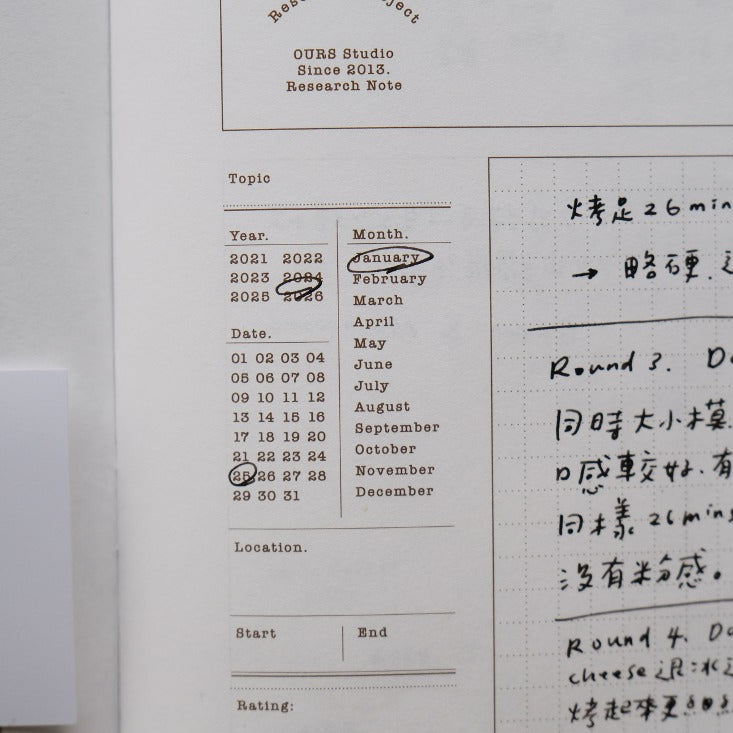 OURS Studio
Since 2013.
Research Note
Topic
Year.
2021 2022
2023 2024
2025 2026
Date.
01 02 03 04
05 06 07 08
09 10 11 12
13 14 15 16
17 18 19 20
21 22 23 24
25 26 27 28
29 30 31
Month.
January
February
March
April
May
June
July
August
September
October
November
December
Location.
Start
End
Rating:
烤足 26 min
→ 略硬、
Round 3.
同時大小模
口感較好、有
同樣 26 mins
沒有粉感。
Round 4.
cheese 退冰
烤起來更